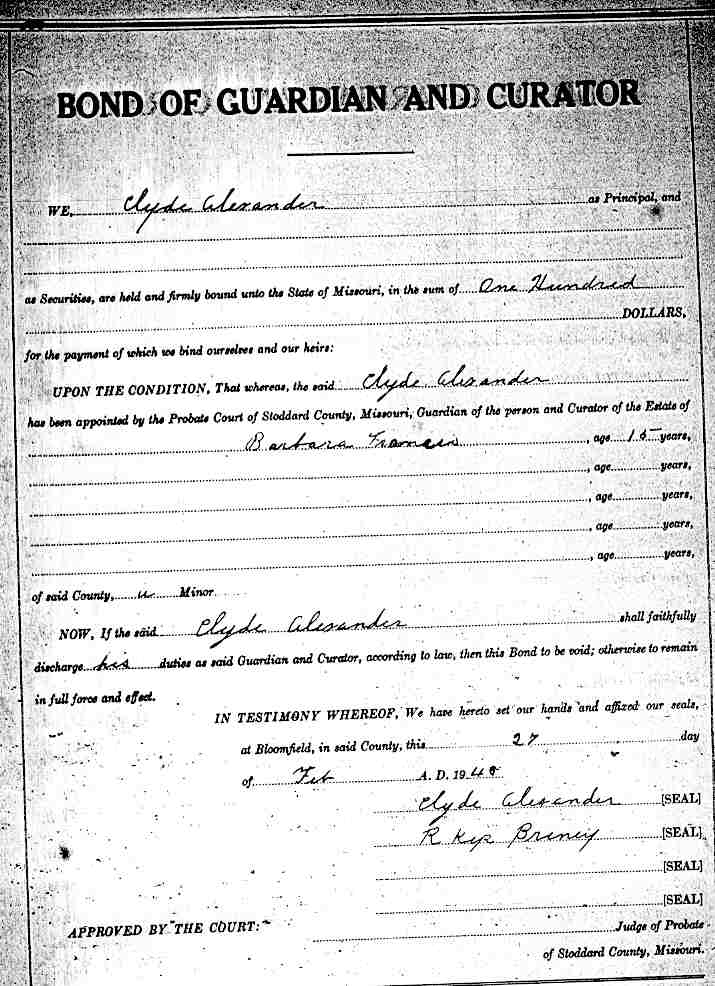 BOND OF GUARDIAN AND CURATOR
WE, Clyde Alexander as Principal, and
as Securities, are held and firmly bound unto the State of Missouri, in the sum of One Hundred
DOLLARS,
for the payment of which we bind ourselves and our heirs:
UPON THE CONDITION, That whereas, the said Clyde Alexander
has been appointed by the Probate Court of Stoddard County, Missouri, Guardian of the person and Curator of the Estate of
Barbara Frances, age 15 years,
, age years,
, age years,
, age years,
, age years,
of said County, a Minor
NOW, If the said Clyde Alexander shall faithfully
discharge his duties as said Guardian and Curator, according to law, then this Bond to be void; otherwise to remain
in full force and effect.
IN TESTIMONY WHEREOF, We have hereto set our hands and affixed our seals,
at Bloomfield, in said County, this 27 day
of Feb A. D. 1948
Clyde Alexander [SEAL]
R Kip Briney [SEAL]
[SEAL]
[SEAL]
APPROVED BY THE COURT:
Judge of Probate
of Stoddard County, Missouri.